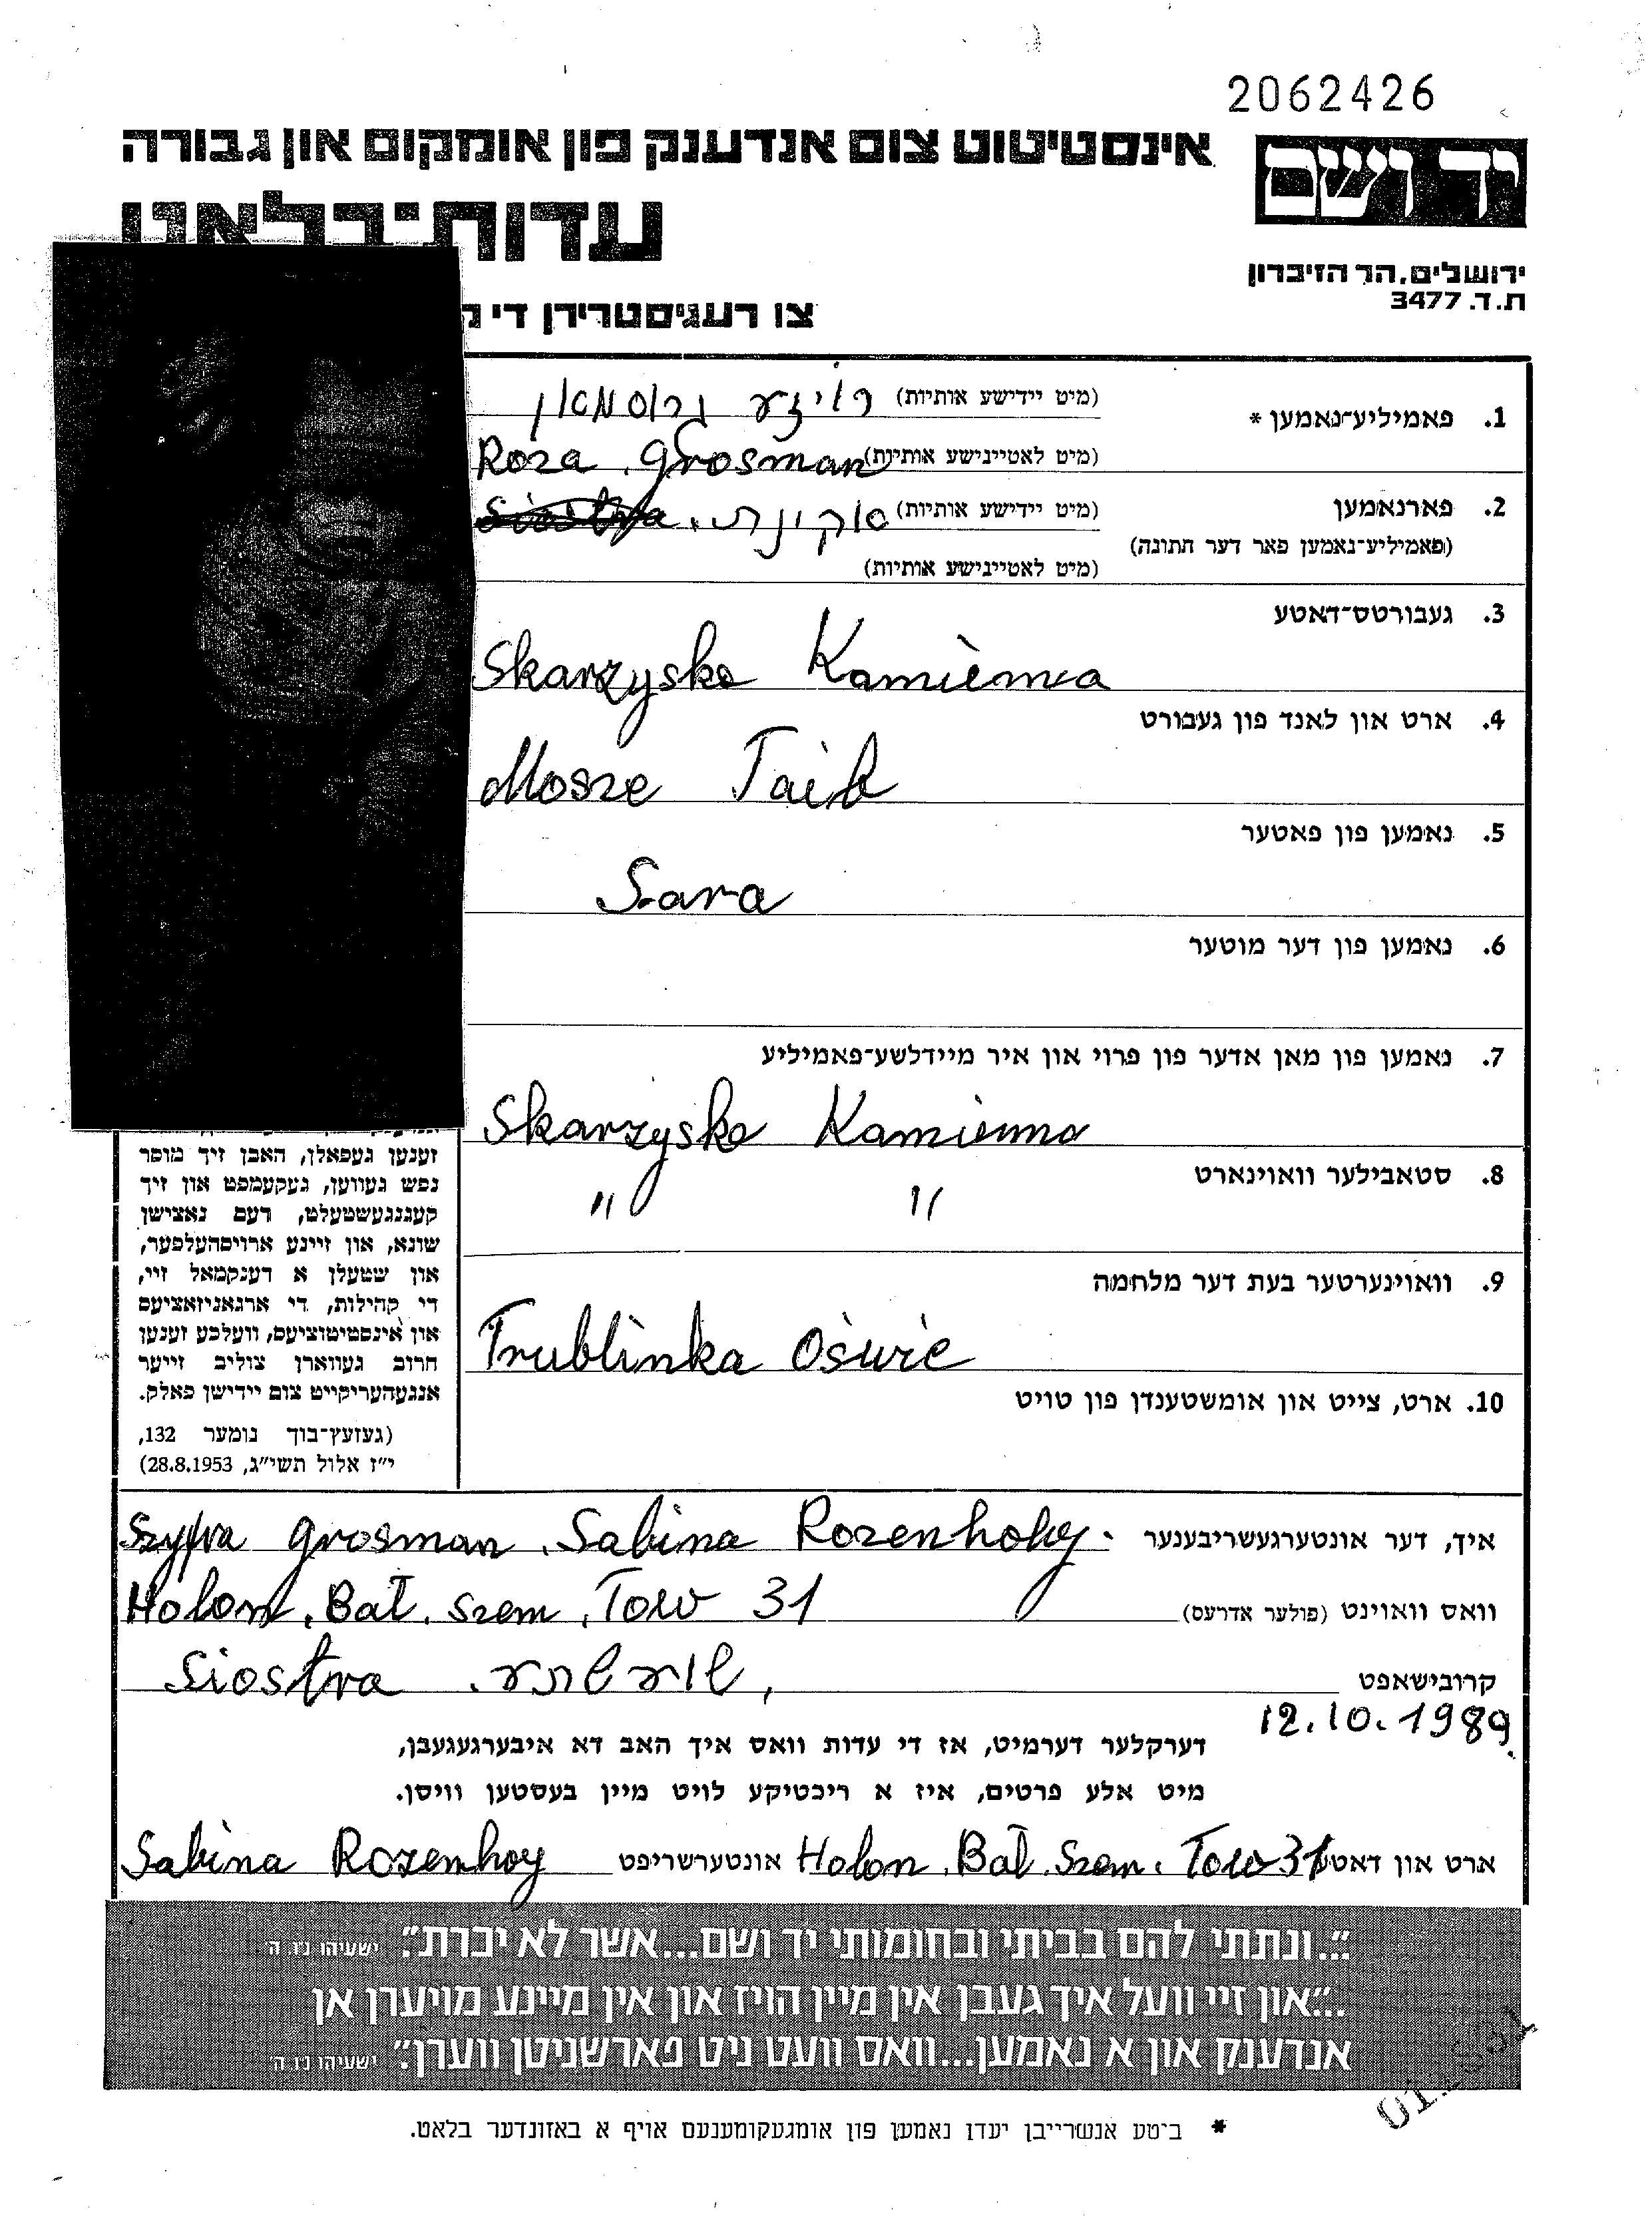 2062426
אינסטיטוט צום אנדענק פון אומקום און גבורה
יד ושם
עדות־בלאט
ירושלים, הר הזיכרון
ת.ד. 3477
צו רעגיסטרירן די
1. פאמיליע־נאמען * (מיט יידישע אותיות) רויזע גראסמאן
(מיט לאטיינישע אותיות) Roza Grosman
2. פארנאמען (מיט יידישע אותיות)
(פאמיליע־נאמען פאר דער חתונה)
(מיט לאטיינישע אותיות)
3. געבורטס־דאטע
Skarzysko Kamienna
4. ארט און לאנד פון געבורט
Mosze Taib
5. נאמען פון פאטער
Sara
6. נאמען פון דער מוטער
7. נאמען פון מאן אדער פון פרוי און איר מיידלשע־פאמיליע
Skarzysko Kamienna
8. סטאבילער וואוינארט
" "
9. וואוינערטער בעת דער מלחמה
Trublinka Oświe
10. ארט, צייט און אומשטענדן פון טויט
זענען געפאלן, האבן זיך מוסר
נפש געווען, געקעמפט און זיך
קעגנגעשטעלט, דעם נאצישן
שונא, און זיינע ארויסהעלפער,
און שטעלן א דענקמאל זיי,
די קהילות, די ארגאניזאציעס
און אינסטיטוציעס, וועלכע זענען
חרוב געווארן צוליב זייער
אנגעהעריקייט צום יידישן פאלק.
(געזעץ־בוך נומער 132,
י״ז אלול תשי״ג, 28.8.1953)
איך, דער אונטערגעשריבענער Szyfra Grosman Sabina Rozenholy
וואס וואוינט (פולער אדרעס) Holon. Bał. Szem. Tow 31
קרובישאפט שוועסתע. Siostra
12.10.1989
דערקלער דערמיט, אז די עדות וואס איך האב דא איבערגעגעבן,
מיט אלע פרטים, איז א ריכטיקע לויט מיין בעסטען וויסן.
ארט און דאטע Holon. Bał. Szem. Tow 31 אונטערשריפט Sabina Rozenhoy
"...ונתתי להם בביתי ובחומותי יד ושם...אשר לא יכרת." ישעיהו נ״ו, ה
"...און זיי וועל איך געבן אין מיין הויז און אין מיינע מויערן אן
אנדענק און א נאמען...וואס וועט ניט פארשניטן ווערן." ישעיהו נ״ו, ה
* ביטע אנשרייבן יעדן נאמען פון אומגעקומענעם אויף א באזונדער בלאט.